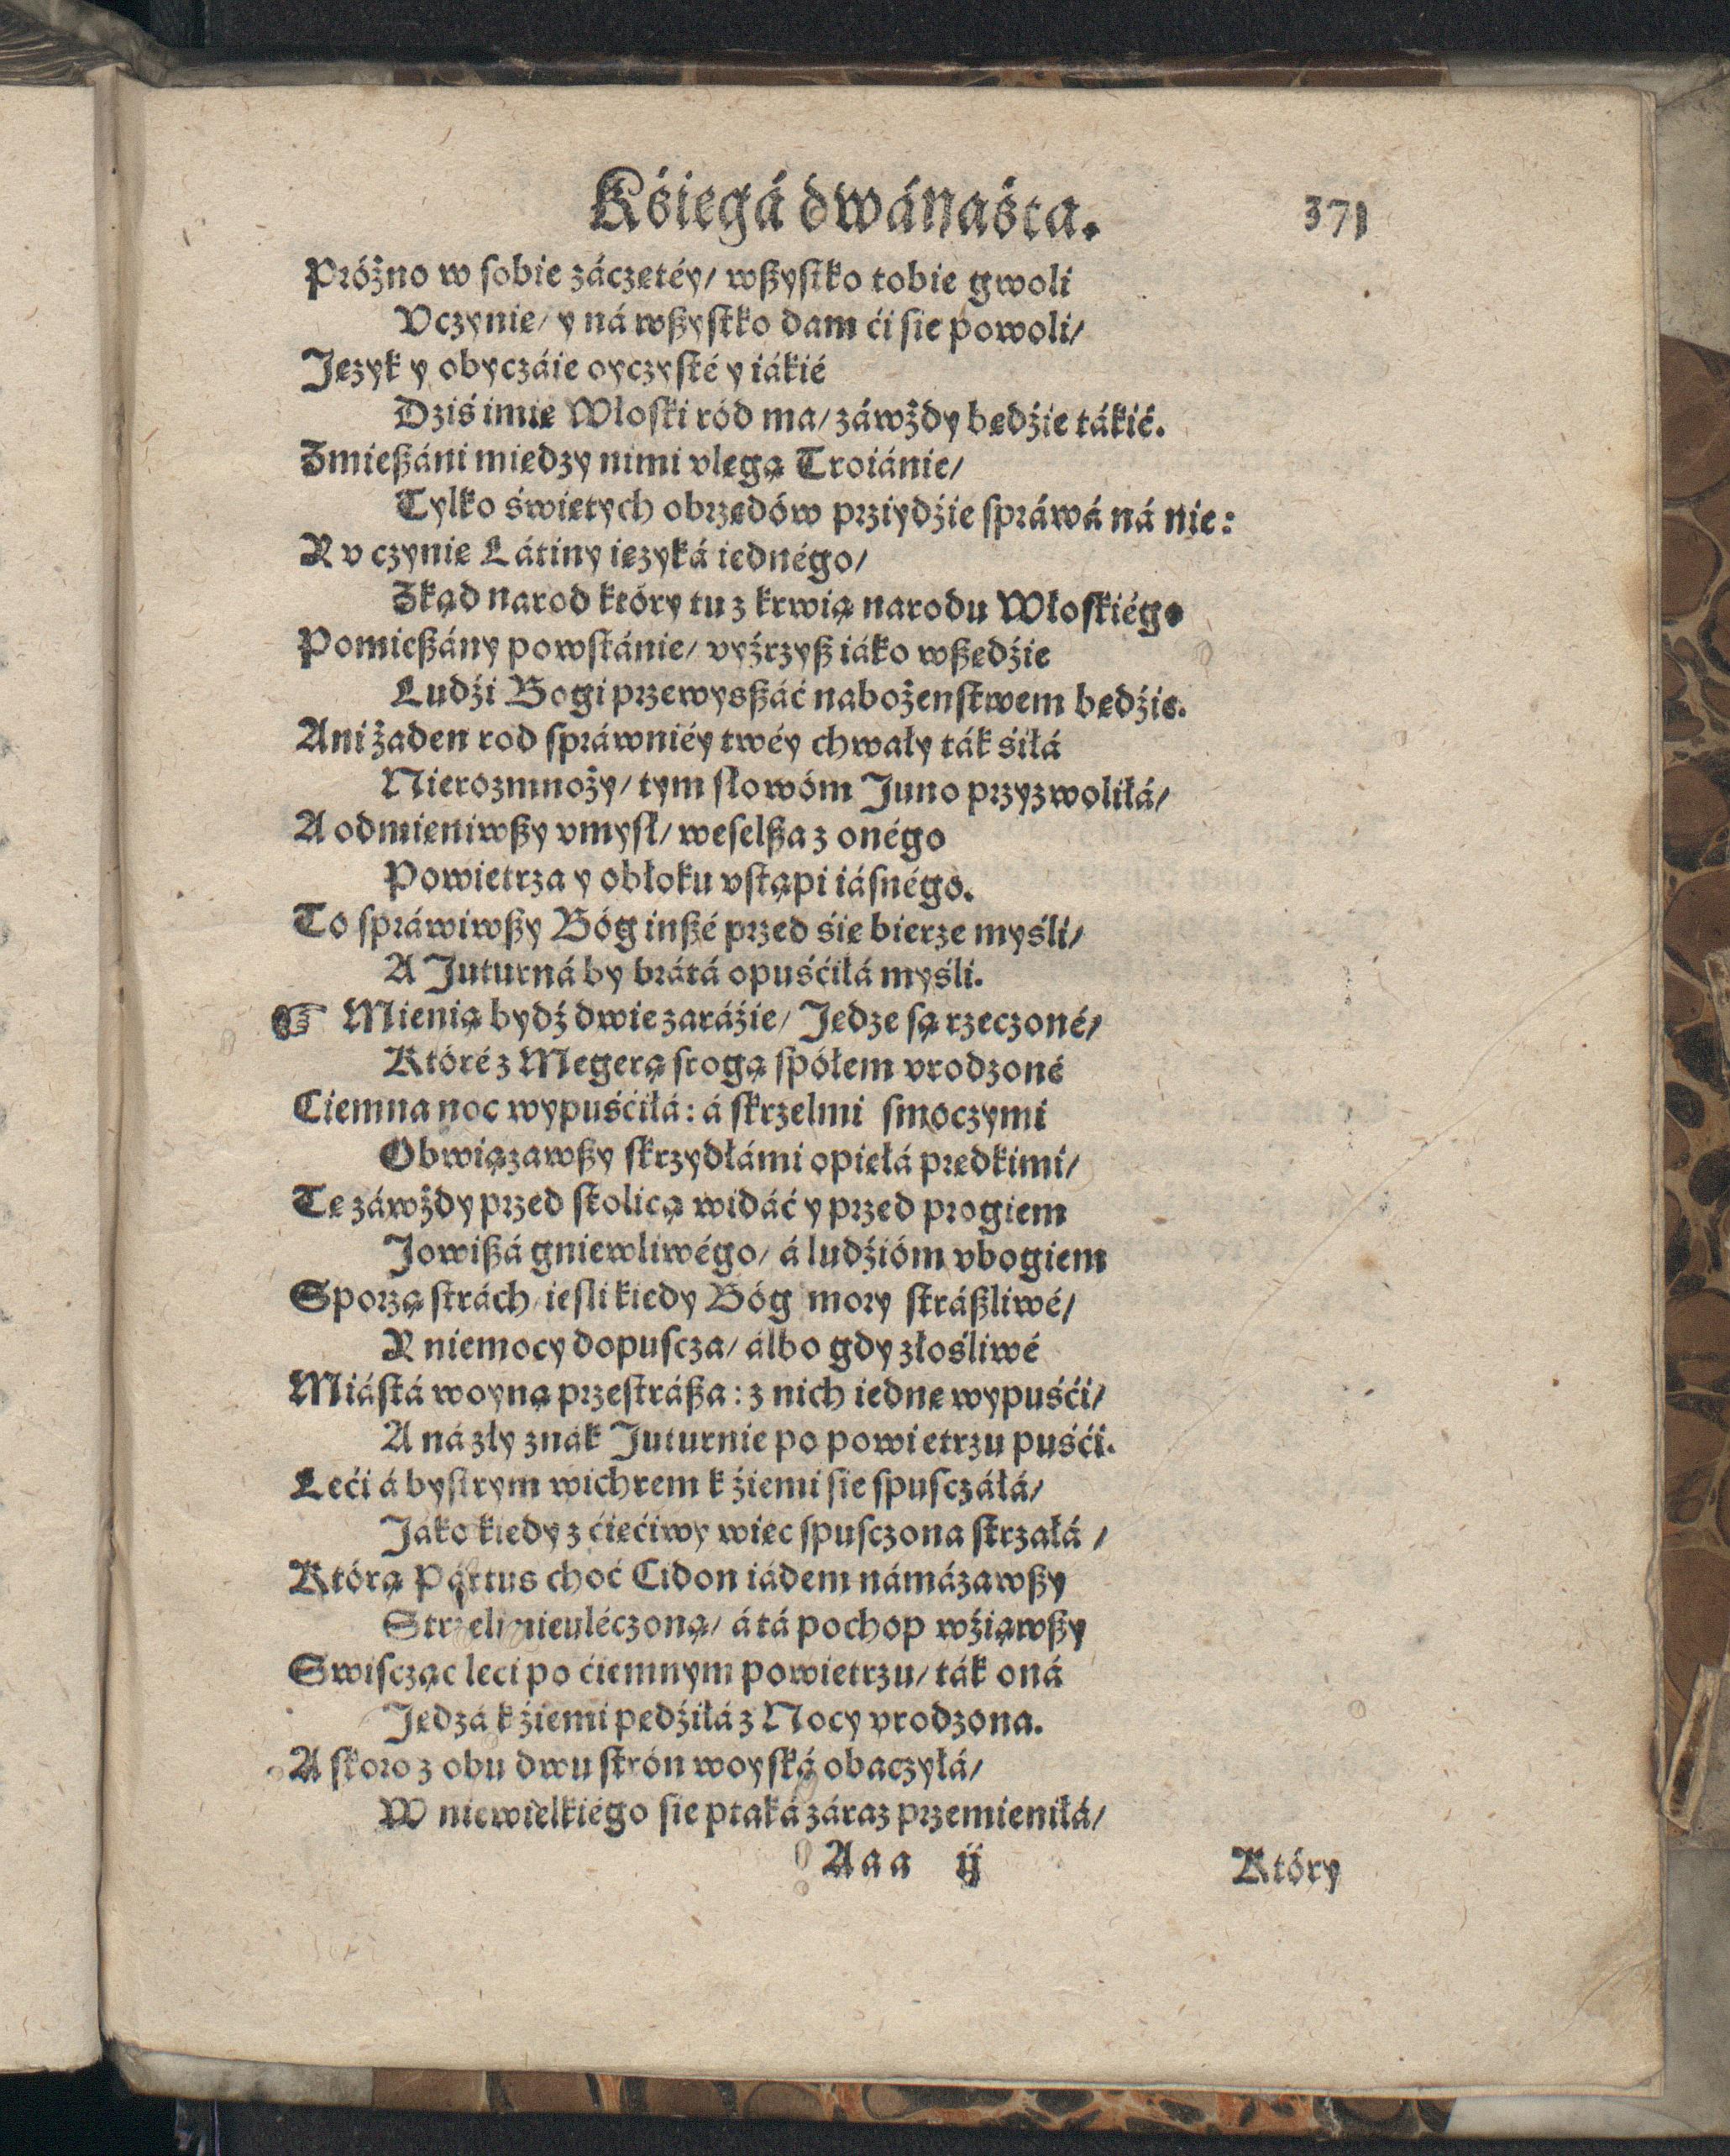 Kśięgá dwánaśta. 371
Próżno w sobie záczętéy/ wßystko tobie gwoli
Vczynię/ y ná wßystko dam ći się powoli/
Język y obyczáie oyczysté y iákié
Dziś imię Włoski ród ma/ záwżdy będźie tákié.
Zmießáni miedzy nimi vlegą Troiánie/
Tylko świętych obrzędów prziydźie spráwá ná nie:
Y vczynię Látiny ięzyká iednégo/
Zkąd narod który tu z krwią narodu Włoskiégo
Pomießány powstánie/ vyźrzyß iáko wßędźie
Ludźi Bogi przewysßáć nabożenstwem będźie.
Ani żaden rod spráwniéy twéy chwały ták śiłá
Nierozmnoży/ tym słowóm Juno przyzwoliłá/
A odmieniwßy vmysł/ weselßa z onégo
Powietrza y obłoku vstąpi iásnégo.
To spráwiwßy Bóg inßé przed śię bierze myśli/
A Juturná by brátá opuśćiłá myśli.
☞ Mienią bydź dwie zaráźie/ Jędze są rzeczoné/
Któré z Megerą srogą spółem vrodzoné
Ciemna noc wypuśćiłá: á skrzelmi smoczymi
Obwiązawßy skrzydłámi opiełá prędkimi/
Te záwżdy przed stolicą widáć y przed progiem
Jowißá gniewliwégo/ á ludźióm vbogiem
Sporzą strách/ iesli kiedy Bóg mory stráßliwé/
Y niemocy dopuscza/ álbo gdy złośliwé
Miástá woyną przestráßa: z nich iednę wypuśći/
A ná zły znák Juturnie po powietrzu puśći.
Leći á bystrym wichrem k źiemi się spusczáłá/
Jáko kiedy z ćięćiwy więc spusczona strzałá/
Którą Pártus choć Cidon iádem námázawßy
Strzeli nieuléczoną/ á tá pochop wźiąwßy
Swiscząc leci po ćiemnym powietrzu/ ták oná
Jędzá k źiemi pędźiłá z Nocy vrodzona.
A skoro z obu dwu strón woyská obaczyłá/
W niewielkiégo się ptaká záraz przemieniłá/
Aaa ij Który